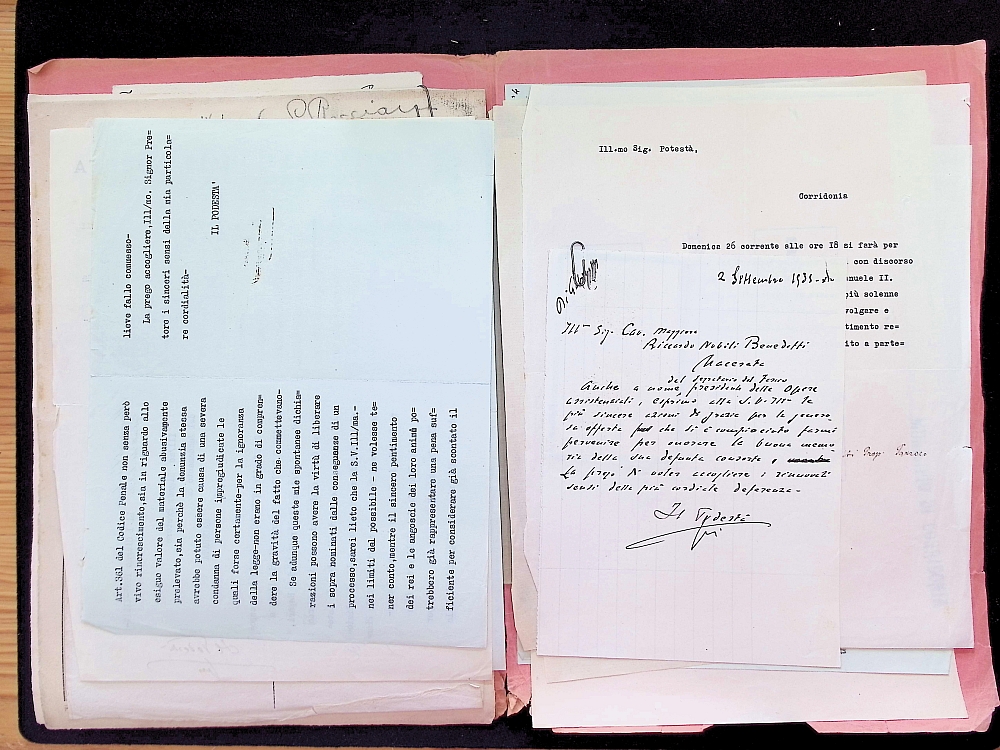 Art.361 del Codice Penale non senza però
vivo rincrescimento,sia in riguardo allo
esiguo valore del materiale abusivamente
prelevato,sia perchè la denunzia stessa
avrebbe potuto essere causa di una severa
condanna di persone impregiudicate le
quali forse certamente-per la ignoranza
della legge-non erano in grado di compren=
dere la gravità del fatto che commettevano-
Se adunque queste mie spontanee dichia=
razioni possono avere la virtù di liberare
i sopra nominati dalle conseguenze di un
processo,sarei lieto che la S.V.Ill/ma.-
nei limiti del possibile - ne volesse te=
ner conto,mentre il sincero pentimento
dei rei e le angoscie dei loro animi po=
trebbero già rappresentare una pena suf=
ficiente per considerare già scontato il
lieve fallo commesso-
La prego accogliere,Ill/mo. Signor Pre=
tore i sinceri sensi della mia particola=
re cordialità-
IL PODESTA'
Ill.mo Sig. Potestà,
Corridonia
Domenica 26 corrente alle ore 18 si farà per
con discorso
anuele II.
più solenne
volgare e
timento re=
ito a parte=
2 Settembre 1935-
Ill⁠mo Sig. Cav. Maggiore
Riccardo Nobili Benedetti
Macerata
del Segretario del Fascio
Anche a nome, presidente delle Opere
assistenziali, esprimo alla S.V. Ill- le
più sincere azioni di grazie per la genero
sa offerta che si è compiaciuto farmi
pervenire per onorare la buona memo
ria della sua defunta consorte,
La prego di voler accogliere i rinnovati
sensi della più cordiale deferenza-
Il Podestà